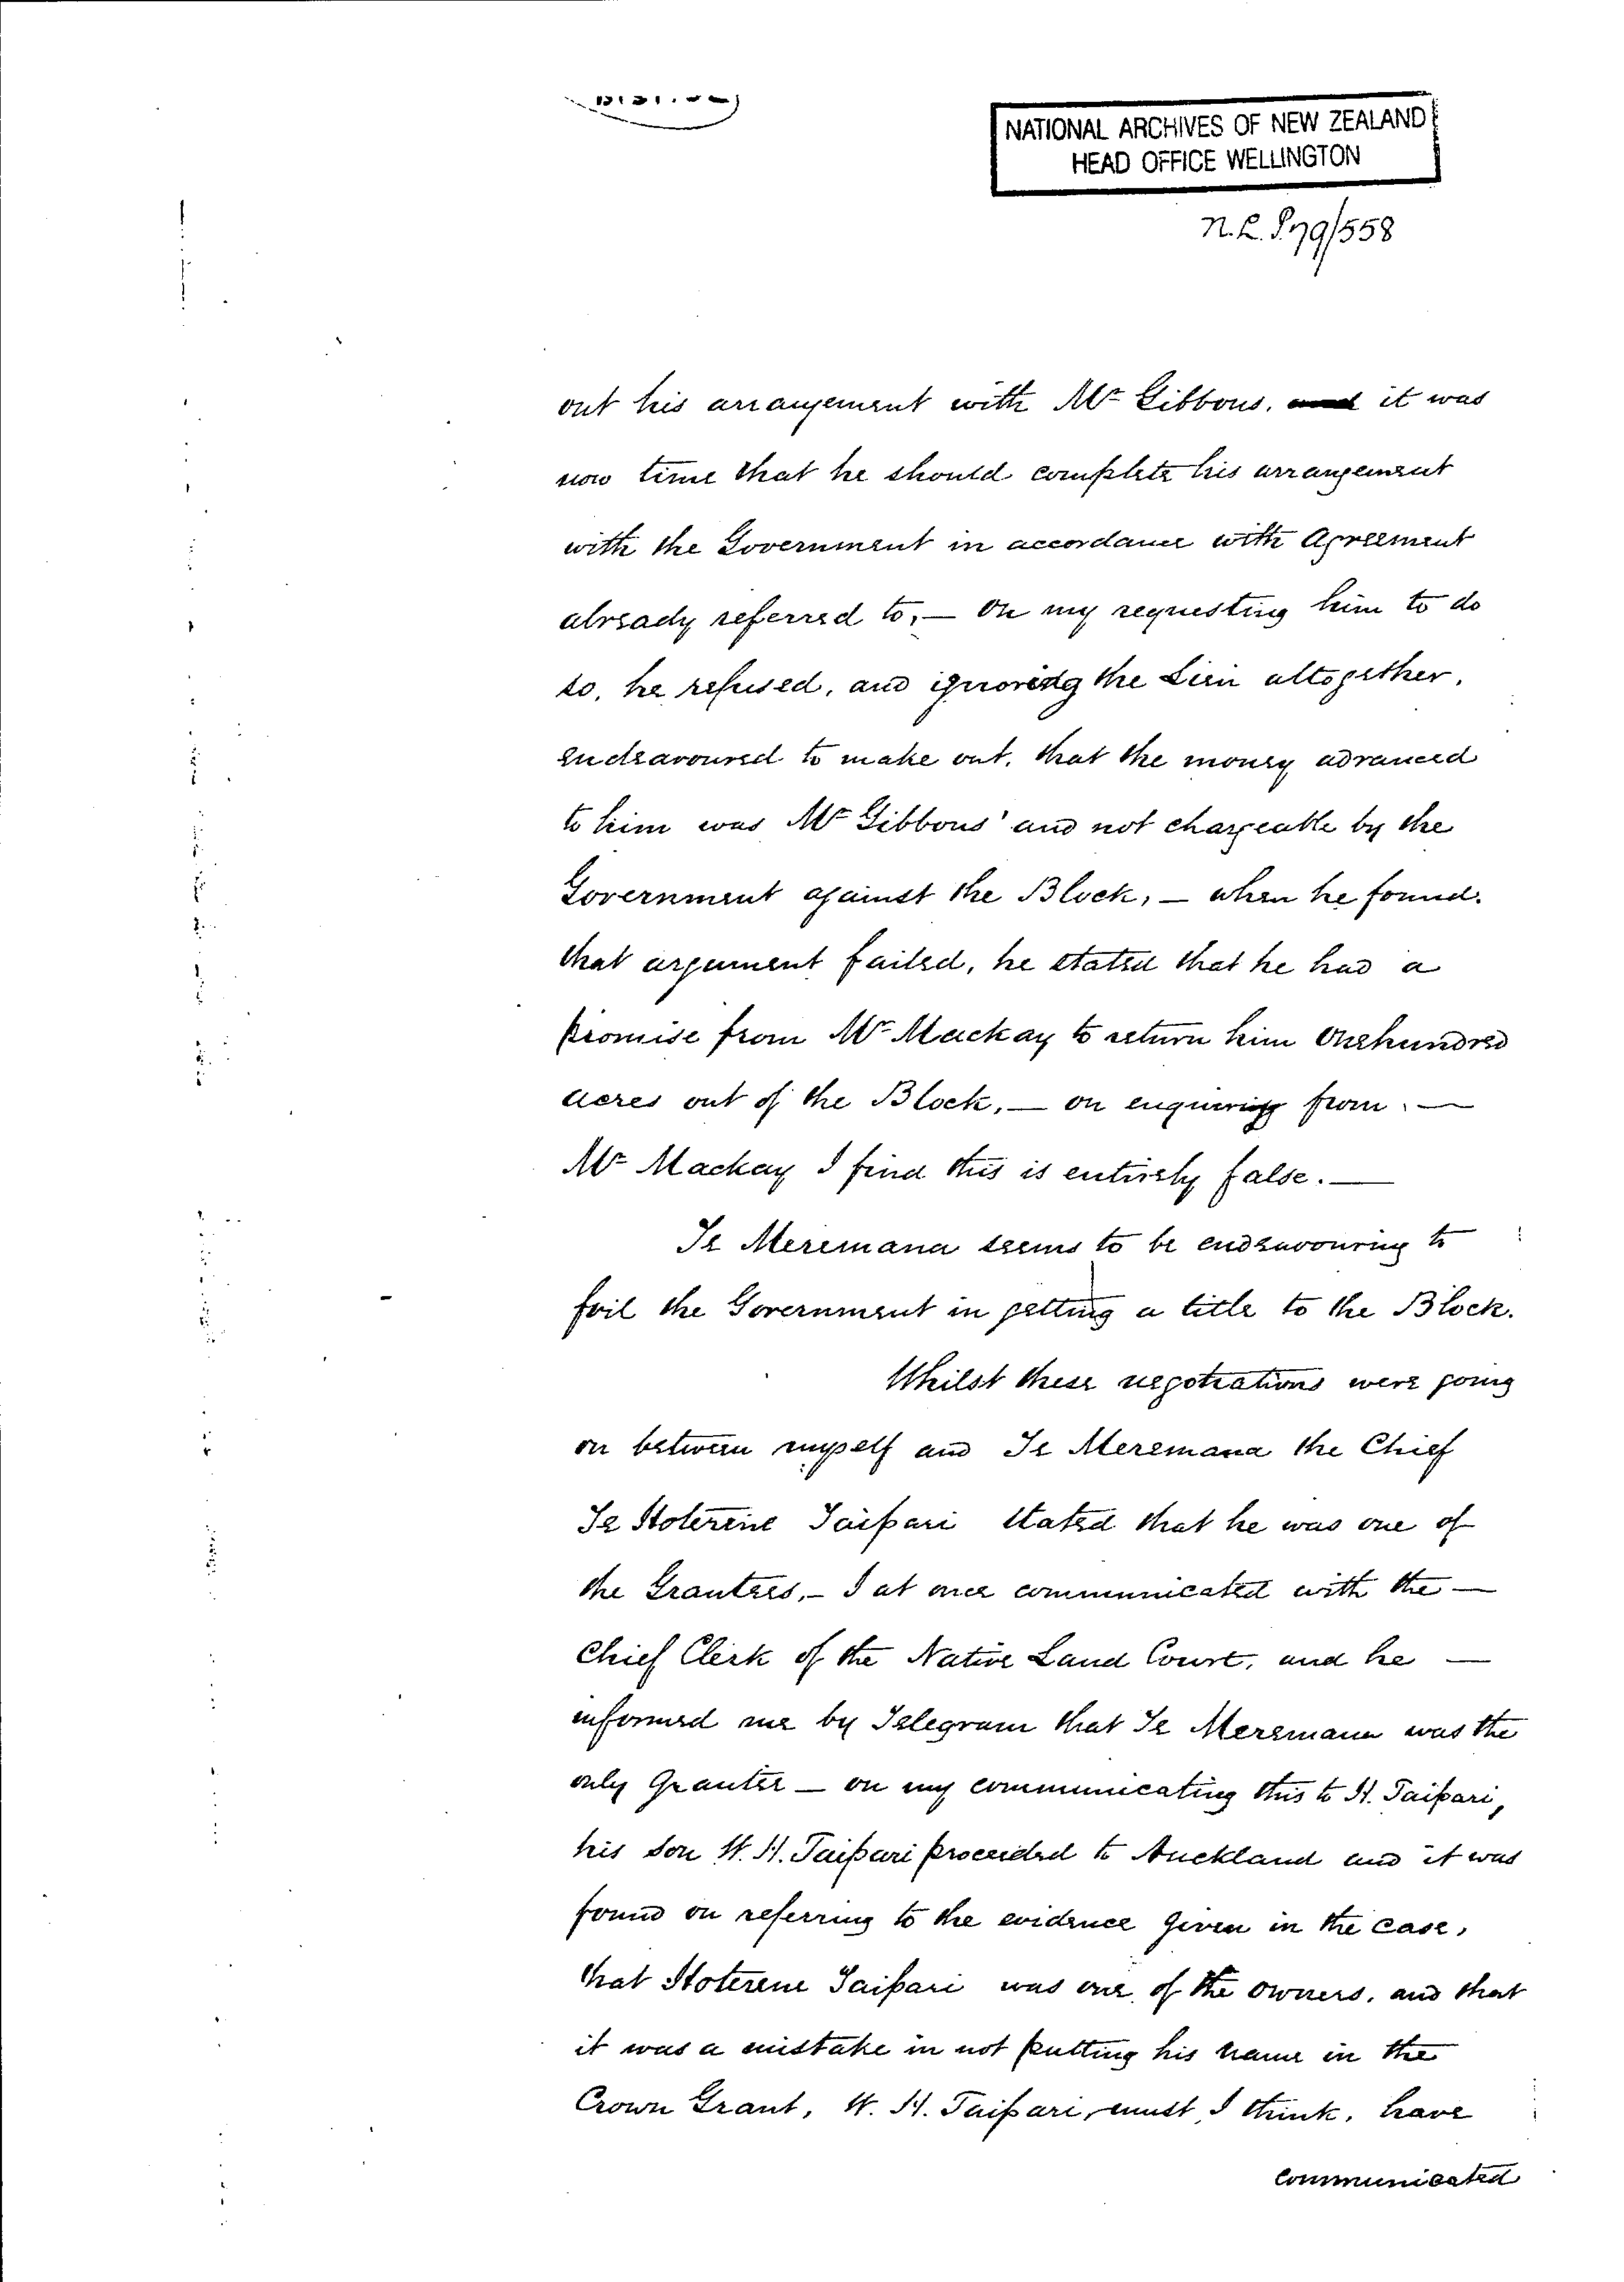 NATIONAL ARCHIVES OF NEW ZEALAND
HEAD OFFICE WELLINGTON
N.L.P.79/558
out his arrangement with Mr Gibbons, and it was
now time that he should complete his arrangement
with the Government in accordance with Agreement
already referred to, — On my requesting him to do
so, he refused, and ignoring the Lien altogether,
endeavoured to make out, that the money advanced
to him was Mr Gibbons' and not chargeable by the
Government against the Block, — when he found
that argument failed, he stated that he had a
promise from Mr Mackay to return him Onehundred
acres out of the Block, — on enquiring from —
Mr Mackay I find this is entirely false. —
Te Meremana seems to be endeavouring to
foil the Government in getting a title to the Block.
Whilst these negotiations were going
on between myself and Te Meremana the Chief
Te Hoterene Taipari stated that he was one of
the Grantees, — I at once communicated with the —
Chief Clerk of the Native Land Court, and he —
informed me by Telegram that Te Meremana was the
only Grantee — on my communicating this to H. Taipari,
his son W. H. Taipari proceeded to Auckland and it was
found on referring to the evidence given in the case,
that Hoterene Taipari was one of the owners, and that
it was a mistake in not putting his name in the
Crown Grant, W. H. Taipari, must, I think, have
communicated